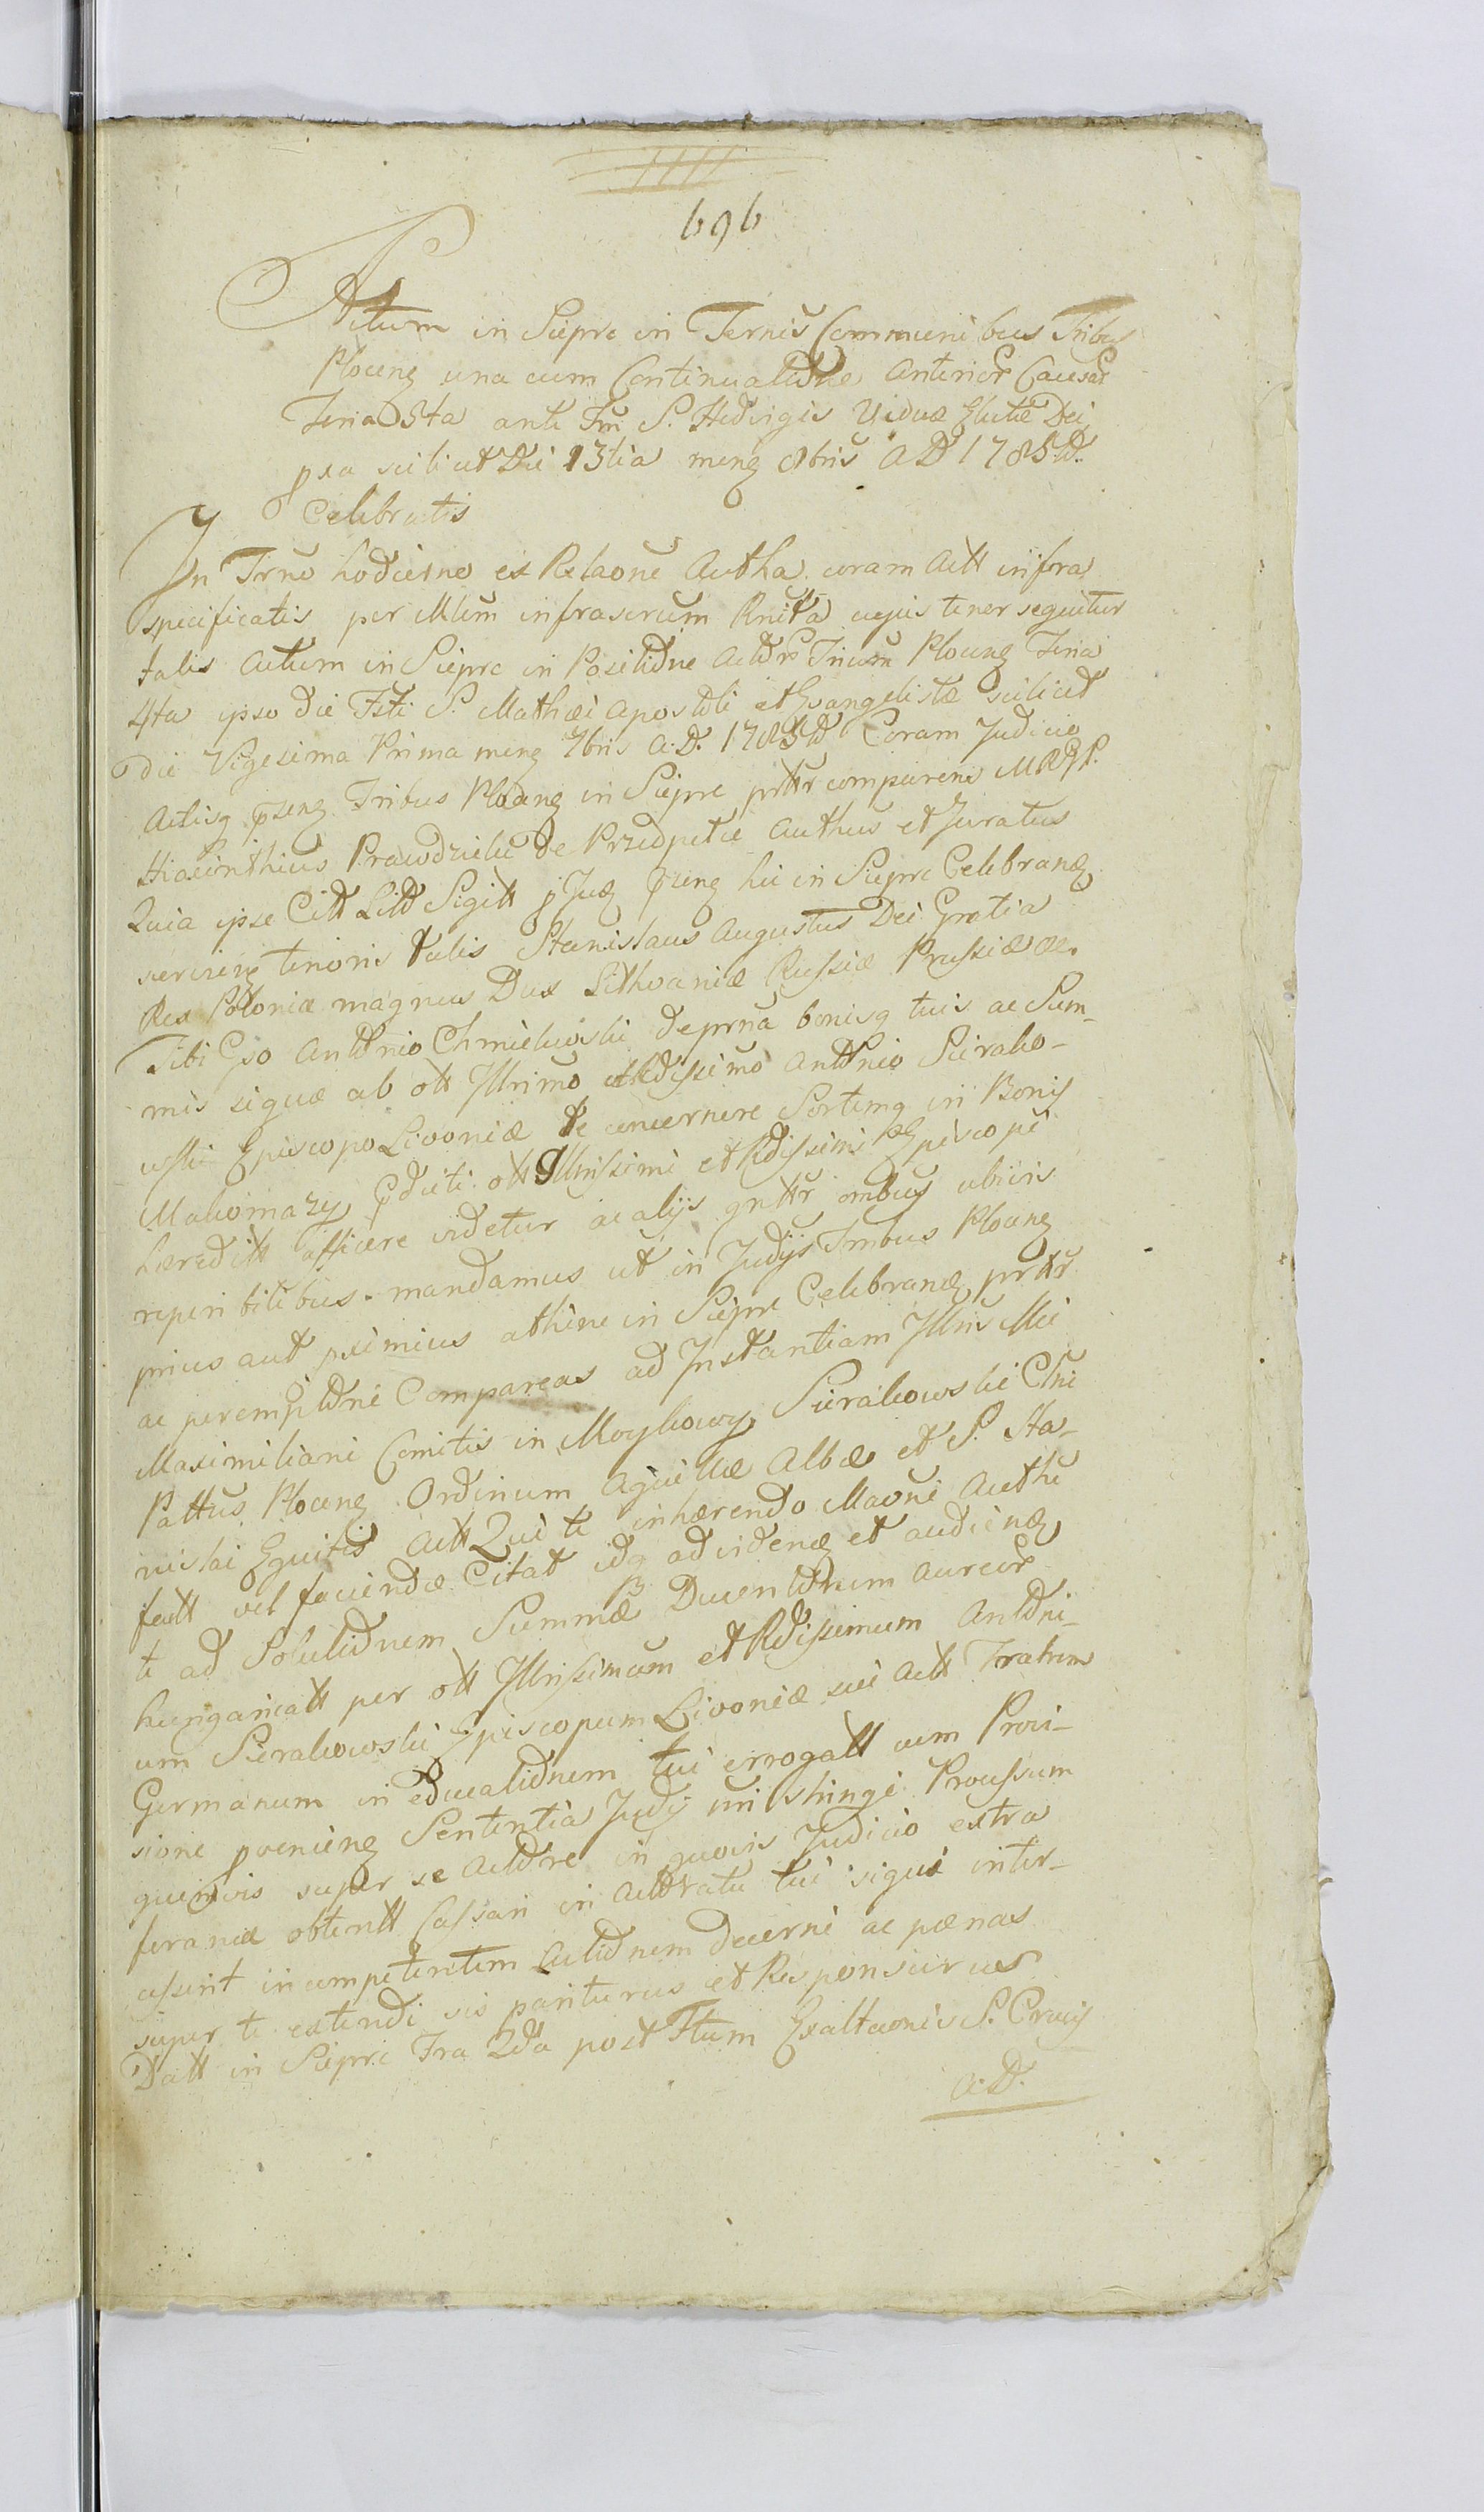 696
Actum in Sieprc in Ternis Communibus Tribus
Plocens una cum Continuatione Anterior Causar
Feria 5ta ante Fm S. Hedvigis Viduae Electae Dei
pxa scilicet Die 13tia mens 8bris A D 1785to
Celebratis
In Trno hodierno ex Relaone Autha coram Actt infra
specificatis per Mlem infrascrum Rnita cujus tenor sequitur
talis Actum in Sieprc in Positione Actor Trium Plocens Feria
4ta ipso die Fsti S. Mathaei Apostoli et Evangelistae scilicet
die Vigesima Prima mens 7bris A. D. 1785to Coram Judicio
Actisq psens Tribus Plocens in Sieprc prttr comparens MRGP.
Hiacinthius Prawdzicki de Przedpelce Authus et Juratus
Quia ipse Citt Litt Sigitt p Jud psens hic in Sieprc Celebrand
serviens tenoris talis Stanislaus Augustus Dei Gratia
Rex Poloniae magnus Dux Lithvaniae Russiae Prussiae &c.
Tibi Gso Antonio Chmielewski de prna bonisq tuis ac Sum-
mis siquae ab ott Illrimo et Rdissimo Antonio Sierako-
wski Episcopo Livoniae te concernere Sortemq in Bonis
Makomazy pdicti ott Illrissimi et Rdissimi Episcopi
haereditt afficere videtur ac alijs gnttr ombus ubivis
reperibilibus. mandamus ut in Judijs Trnbus Plocens
prius aut pximius athine in Sieprc Celebrand prttr
ac peremptorie Compareas ad Instantiam Illris Mci
Maximiliani Comitis in Moykowy Sierakowski Clhi
Pallus Plocens Ordinum Aquillae Albae et S. Sta-
nislai Equitis Actt Qui te inhaerendo Maoni Authe
factt vel faciendae Citat idq ad videnq et audienq
te ad Solutionem Summae Ducentorum Aureor
hungaricatt per ott Illrissimum et Rdissimum Antoni-
um Sierakowski Episcopum Livoniae sui Actt Fratrem
Germanum in educationem tui errogatt cum Provi-
sione pveniens Sententia Judij uni stringi Processum
quemvis super se Actore in quovis Judicio extra
foraneae obtentt Cassari in Actoratu tui siqui inter-
cesserit incompetentem Actionem decerni ac paenas
super te extendi sis pariturus et Responsurus
Datt in Sieprc Fra 2da post Ftum Exaltaonis S. Crucis
A. D.